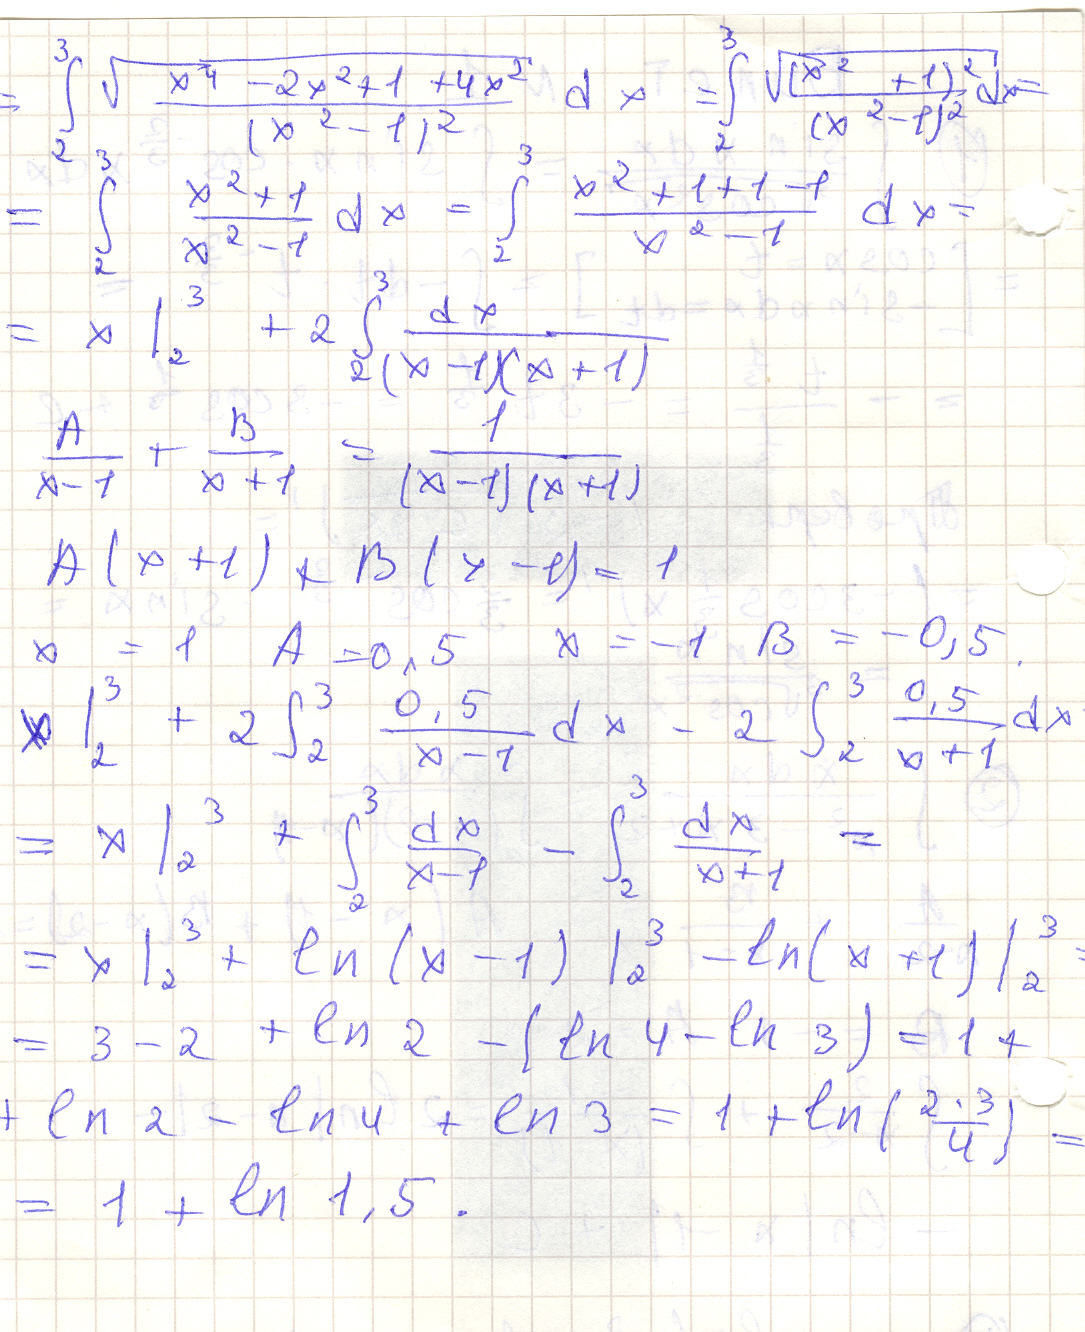 = ∫₂³ √((x⁴ - 2x² + 1 + 4x²)/(x² - 1)²) dx = ∫₂³ √((x² + 1)²/(x² - 1)²) dx =
= ∫₂³ (x² + 1)/(x² - 1) dx = ∫₂³ (x² + 1 + 1 - 1)/(x² - 1) dx =
= x |₂³ + 2 ∫₂³ dx/((x - 1)(x + 1))
A/(x - 1) + B/(x + 1) = 1/((x - 1)(x + 1))
A(x + 1) + B(x - 1) = 1
x = 1 A = 0,5 x = -1 B = -0,5.
x |₂³ + 2 ∫₂³ 0,5/(x - 1) dx - 2 ∫₂³ 0,5/(x + 1) dx
= x |₂³ + ∫₂³ dx/(x - 1) - ∫₂³ dx/(x + 1) =
= x |₂³ + ln(x - 1) |₂³ - ln(x + 1) |₂³ =
= 3 - 2 + ln 2 - (ln 4 - ln 3) = 1 +
+ ln 2 - ln 4 + ln 3 = 1 + ln(2·3/4) =
= 1 + ln 1,5.